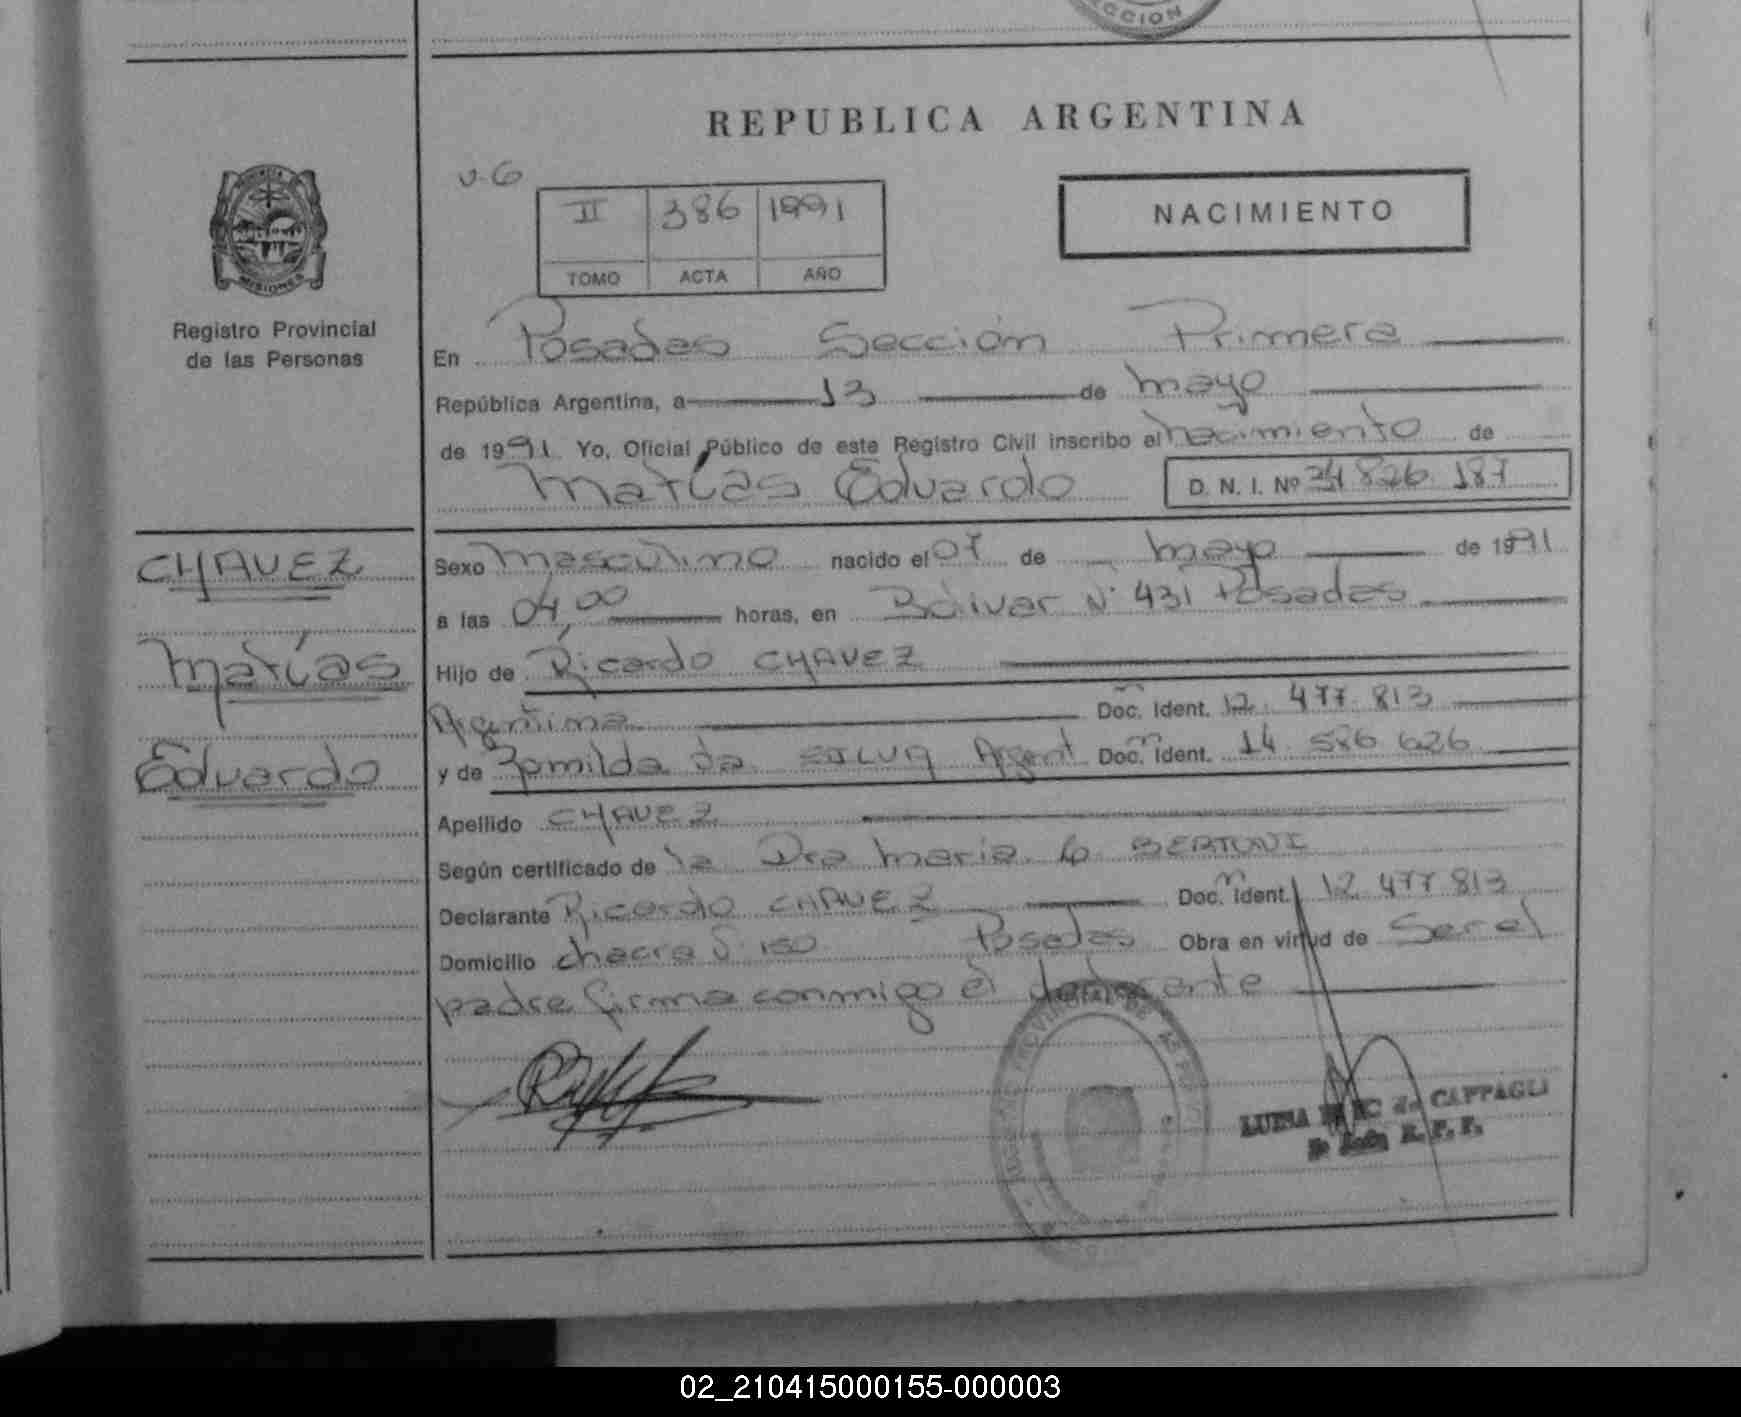 CCION
REPUBLICA ARGENTINA
v.6
II 386 1991
TOMO ACTA AÑO
NACIMIENTO
MISIONES
Registro Provincial
de las Personas
En Posadas Sección Primera
República Argentina, a 13 de mayo
de 1991 Yo, Oficial Público de este Registro Civil inscribo el nacimiento de
Matías Eduardo D. N. I. Nº 34 826 187
CHAVEZ
Matías
Eduardo
Sexo masculino nacido el 07 de mayo de 1991
a las 04,00 horas, en Bolivar Nº 431 Posadas
Hijo de Ricardo CHAVEZ
Argentina Doc. Ident. 12 477 813
y de Romilda Da SILVA Argent Doc. Ident. 14 586 626
Apellido CHAVEZ
Según certificado de la Dra Maria BERTONI
Declarante Ricardo CHAVEZ Doc. Ident. 12 477 813
Domicilio chacra Nº 150 Posadas Obra en virtud de Ser el
padre firma conmigo el declarante
LUISA de CAPPAGLI
R. P. P.
02_210415000155-000003